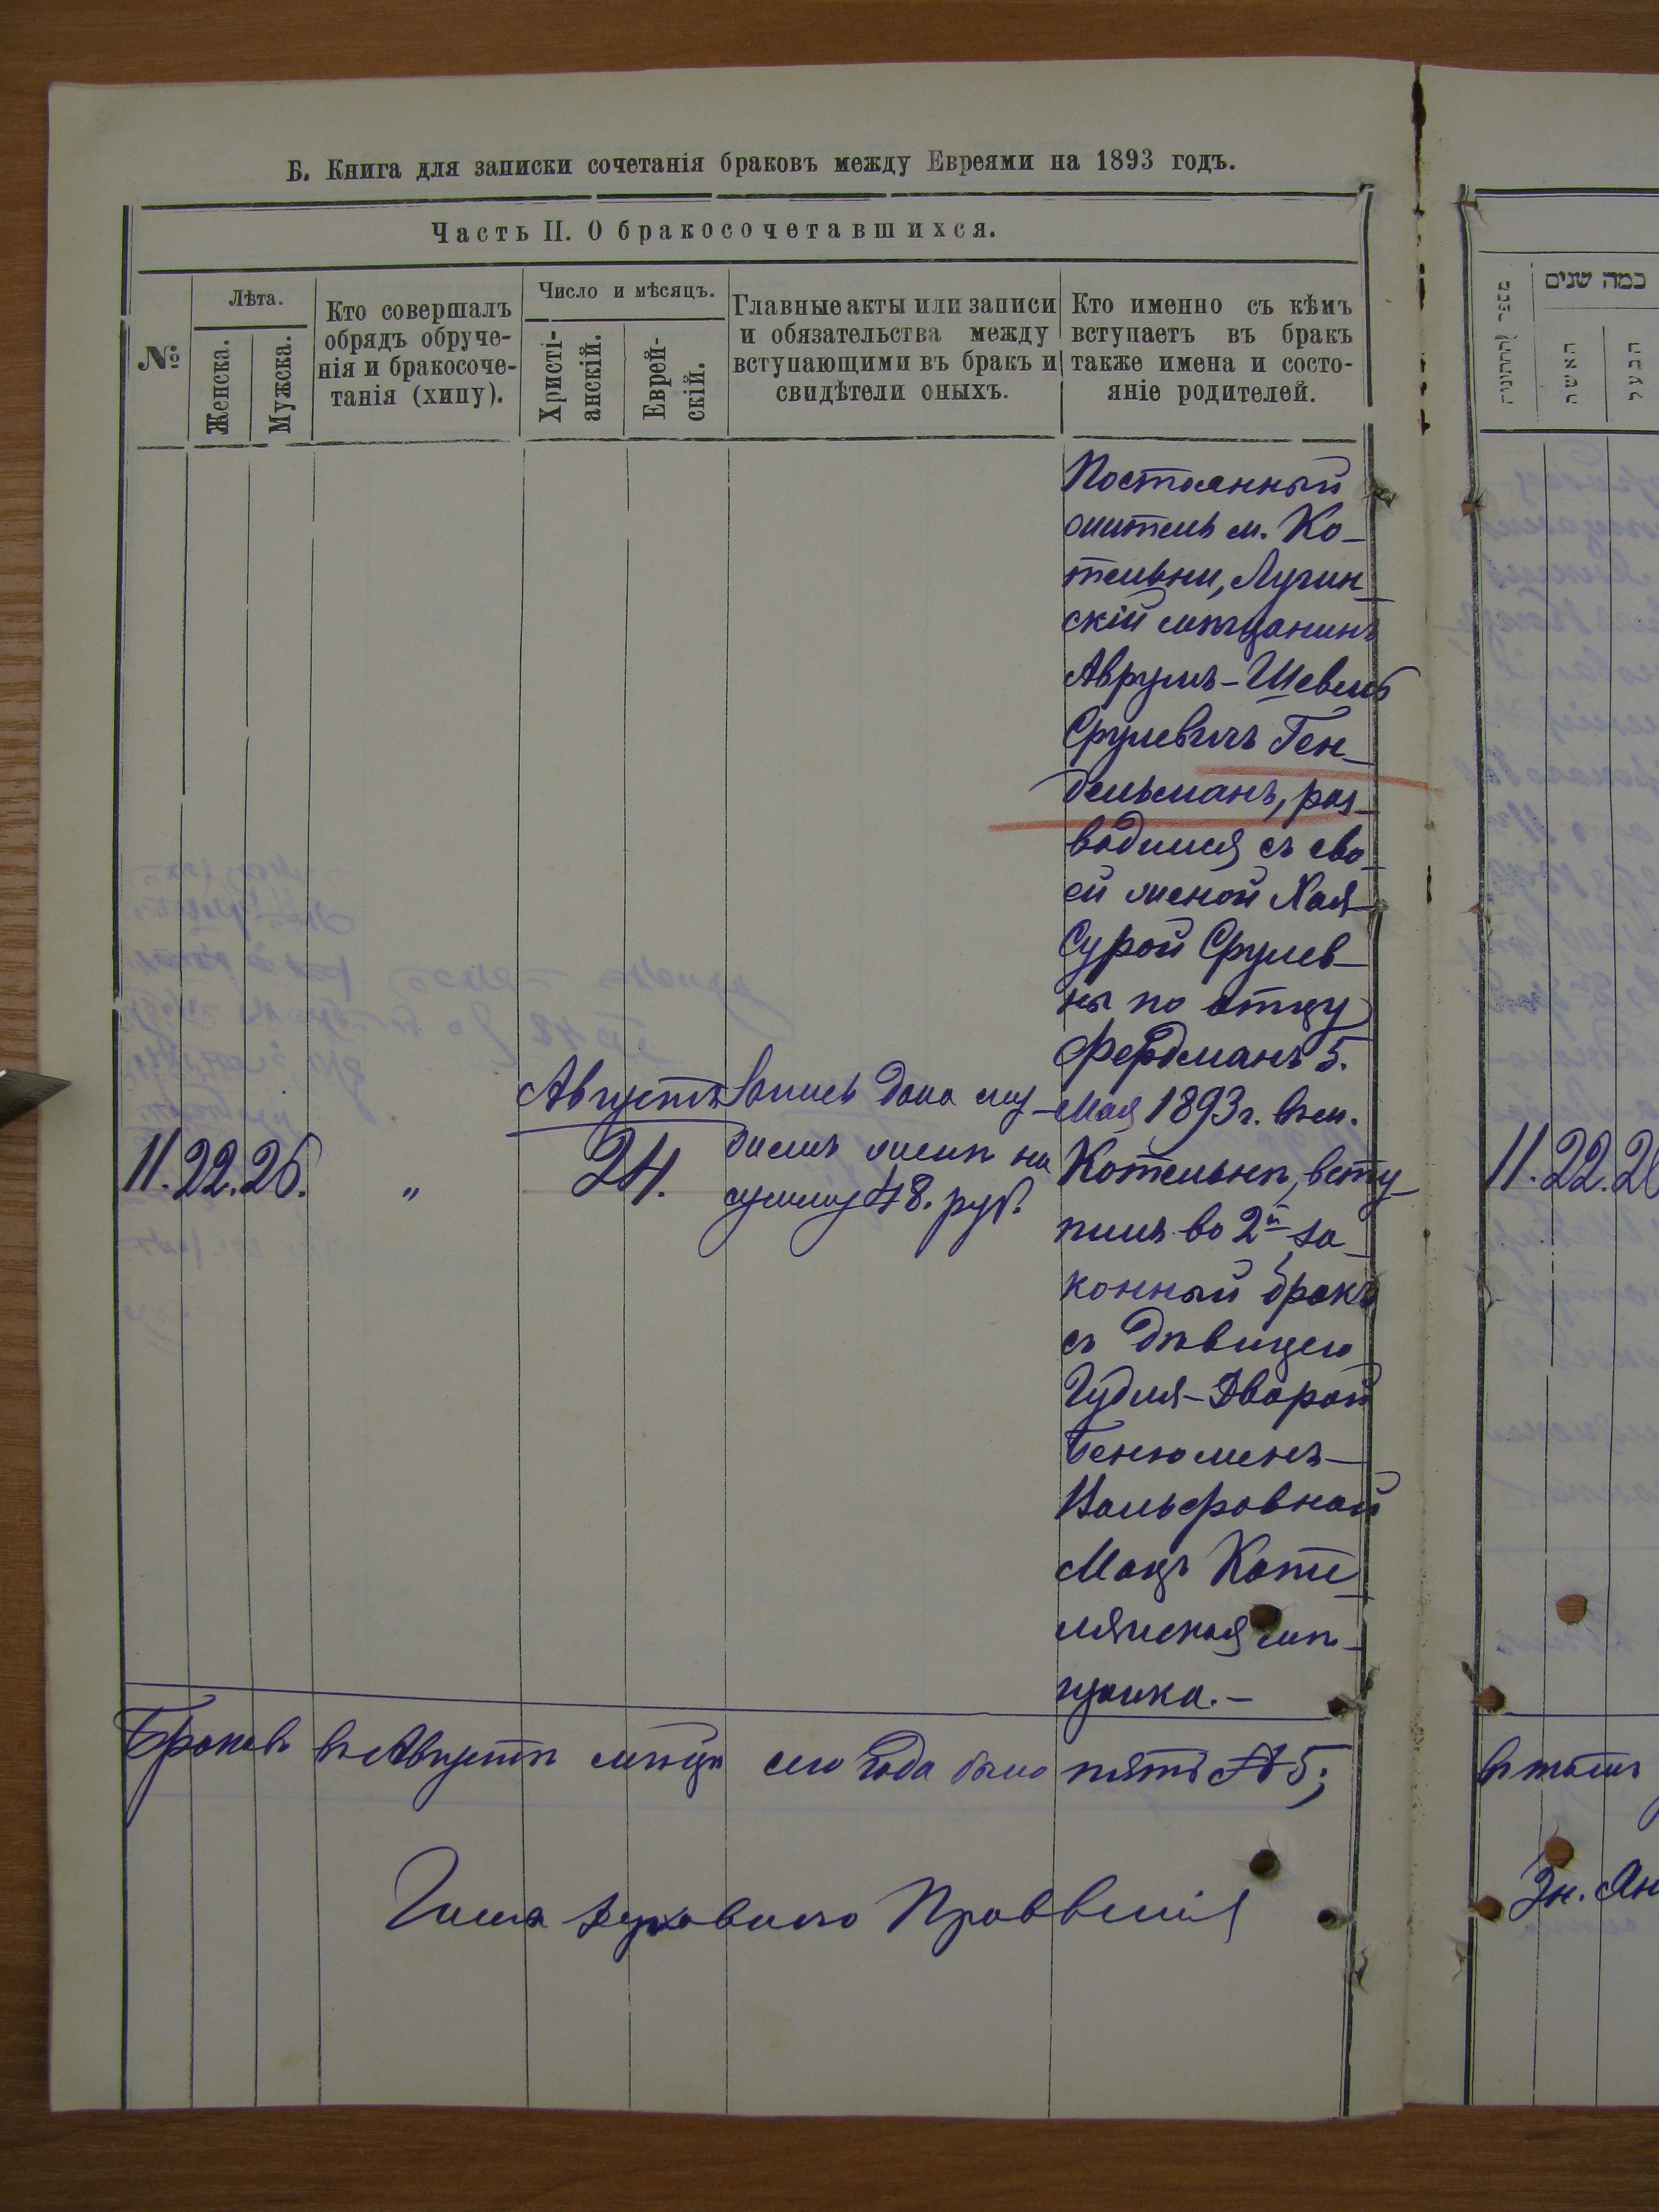 Б. Книга для записки сочетанія браковъ между Евреями на 1893 годъ.
Часть II. О бракосочетавшихся.
№
Лѣта.
Женска.
Мужска.
Кто совершалъ
обрядъ обруче-
нія и бракосоче-
танія (хипу).
Число и мѣсяцъ.
Христі-
анскій.
Еврей-
скій.
Главные акты или записи
и обязательства между
вступающими въ бракъ и
свидѣтели оныхъ.
Кто именно съ кѣмъ
вступаетъ въ бракъ
также имена и состо-
яніе родителей.
11. 22. 26. „
Августа
24.
Запись дана му-
жемъ женѣ на
сумму 48. руб.
Постоянный
житель м. Ко-
тельни, Лугин-
скій мѣщанинъ
Аврумъ-Шевель
Срулевичъ Ген-
дельманъ, раз-
водился съ сво-
ей женой Хая-
Сурой Срулев-
ны по отцу
Фердманъ 5.
Мая 1893 г. въ м.
Котельнѣ, всту-
пилъ во 2й за-
конный бракъ
съ дѣвицею
Гудля-Дворой
Бенюменъ-
Вольфовной
Мацъ Коте-
лянская мѣ-
щанка.-
Браковъ въ Августѣ мѣсяцѣ сего года было пять № 5;
Члены духовного Правленія
מספר החתונה
כמה שנים
האשה
הבעל
11. 22. 2
Зн. Ан